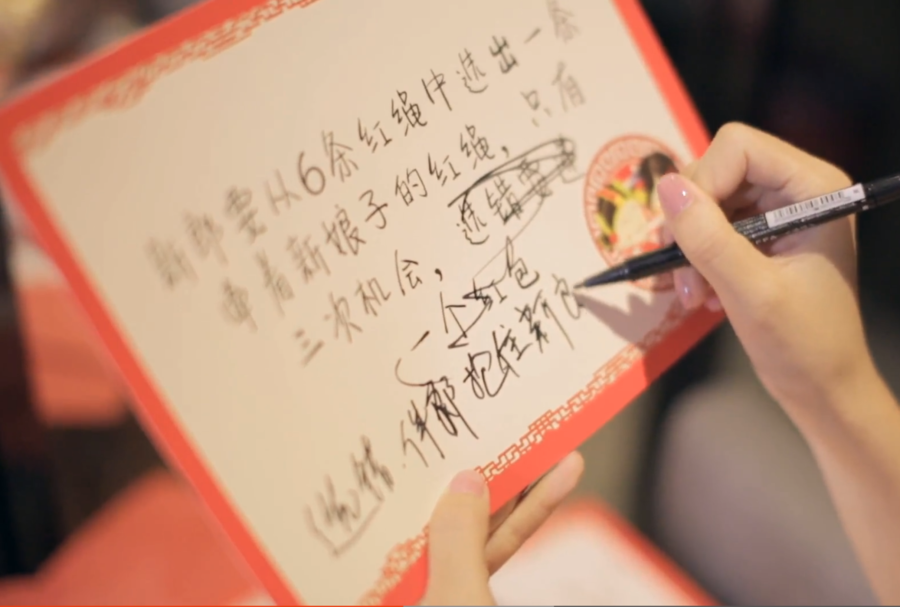 新郎要从6条红绳中选出一条
牵着新娘子的红绳，只有
三次机会，选错要包
一个红包
（选错.伴郎抱住新